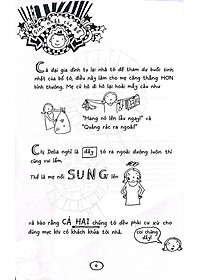 Cả đại gia đình tụ lại nhà tớ để tham dự buổi sinh
nhật của bố tớ, điều này làm cho mẹ căng thẳng HƠN
bình thường. Mẹ cứ hò đi hò lại hoài mấy câu như
"Mang nó lên lầu ngay!" và
"Quẳng rác ra ngoài!"
Chị Delia nghĩ là đẩy tớ ra ngoài đường luôn thì
cũng vui lắm.
Thế là mẹ nổi SUNG lên
và bảo rằng CẢ HAI chúng tớ đều phải cư xử cho
đúng mực khi có khách khứa tới nhà.
coi chừng đấy!
6